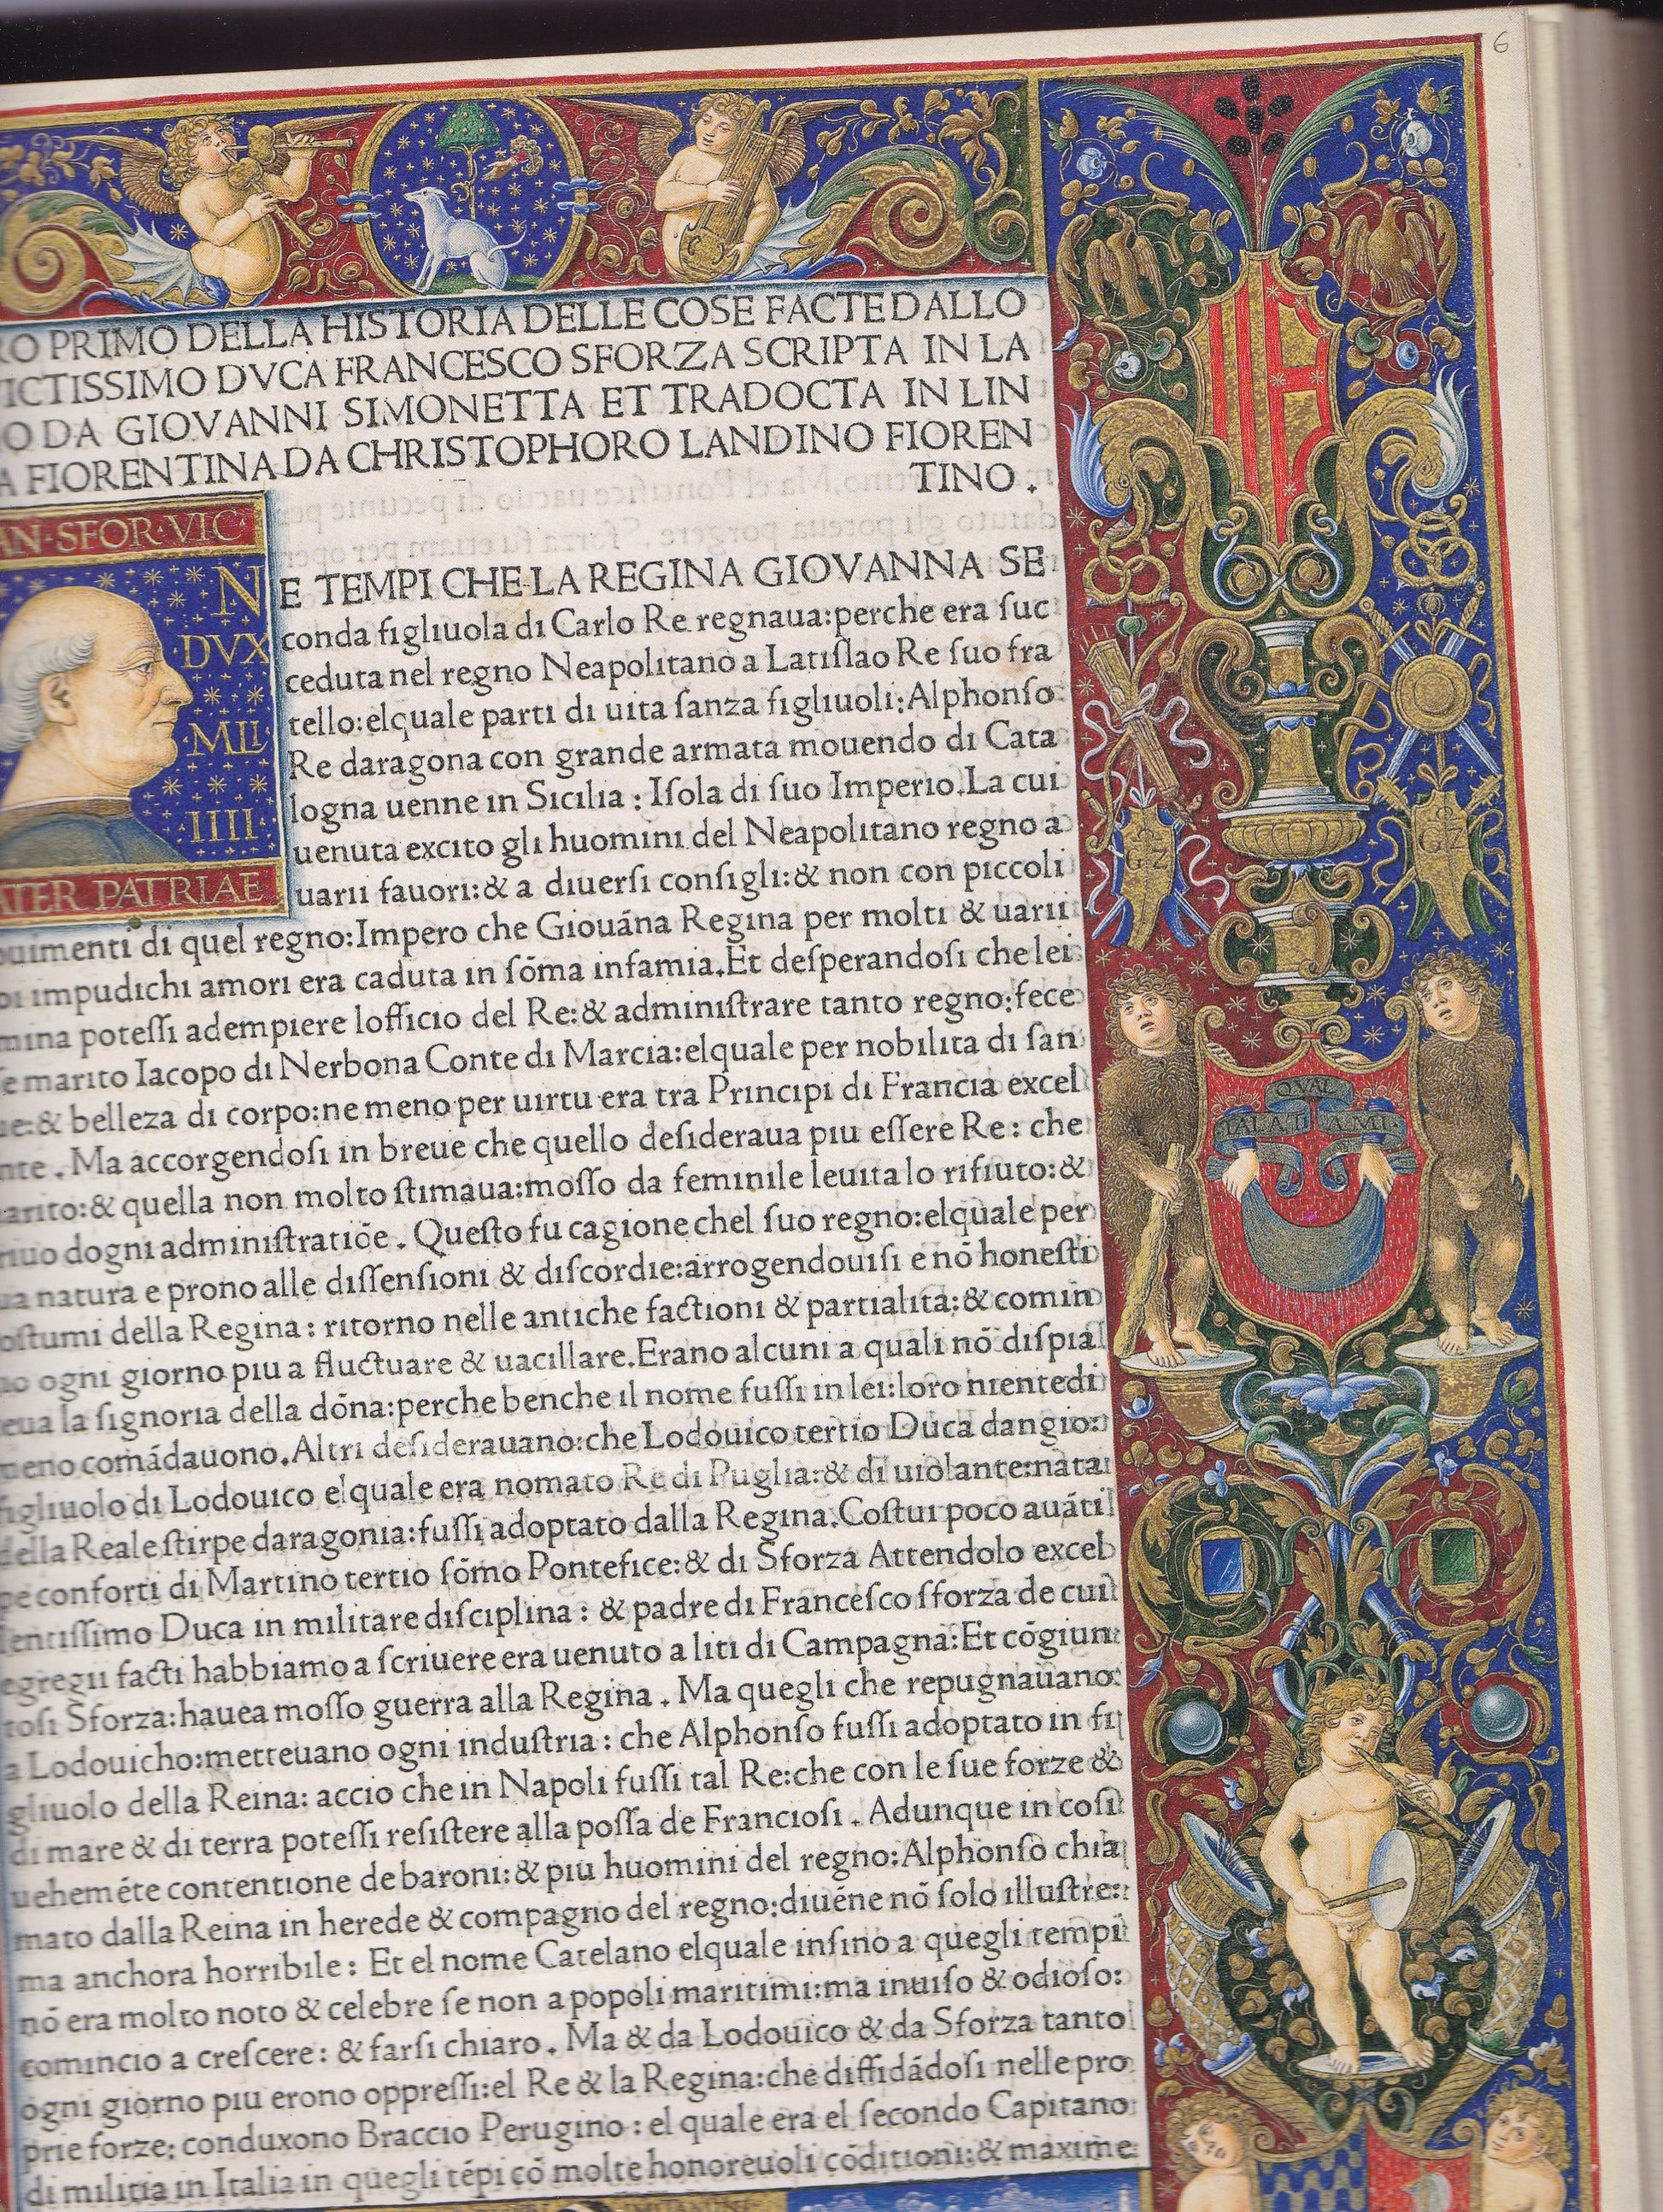 6
RO PRIMO DELLA HISTORIA DELLE COSE FACTE DALLO
ICTISSIMO DVCA FRANCESCO SFORZA SCRIPTA IN LA
O DA GIOVANNI SIMONETTA ET TRADOCTA IN LIN
A FIORENTINA DA CHRISTOPHORO LANDINO FIOREN
TINO .
AN·SFOR·VIC
N
DVX
·MLI·
·IIII·
ATER PATRIAE
E TEMPI CHE LA REGINA GIOVANNA SE
conda figliuola di Carlo Re regnaua:perche era ſuc
ceduta nel regno Neapolitano a Latiſlao Re ſuo fra
tello:elquale parti di uita ſanza figliuoli:Alphonſo
Re daragona con grande armata mouendo di Cata
logna uenne in Sicilia : Iſola di ſuo Imperio.La cui
uenuta excito gli huomini del Neapolitano regno a
uarii fauori:& a diuerſi conſigli:& non con piccoli
ouimenti di quel regno:Impero che Giouāna Regina per molti & uarii
impudichi amori era caduta in ſōma infamia.Et deſperandoſi che lei
mina poteſſi adempiere lofficio del Re:& adminiſtrare tanto regno:fece
e marito Iacopo di Nerbona Conte di Marcia:elquale per nobilita di ſan
ue:& belleza di corpo:ne meno per uirtu era tra Principi di Francia excel
nte . Ma accorgendoſi in breue che quello deſideraua piu eſſere Re: che
arito:& quella non molto ſtimaua:moſſo da feminile leuita lo rifiuto:&
riuo dogni adminiſtratiōe . Queſto fu cagione chel ſuo regno:elquale per
ua natura e prono alle diſſenſioni & diſcordie:arrogendouiſi e nō honeſti
oſtumi della Regina: ritorno nelle antiche factioni & partialita:& comin
io ogni giorno piu a fluctuare & uacillare.Erano alcuni a quali nō diſpia
eua la ſignoria della dōna:perche benche il nome fuſſi in lei:loro niente di
meno comādauono.Altri deſiderauano:che Lodouico tertio Duca dangio:
figliuolo di Lodouico elquale era nomato Re di Puglia:& di uiolante:nata
della Reale ſtirpe daragonia:fuſſi adoptato dalla Regina.Coſtui poco auāti
pe conforti di Martino tertio ſōmo Pontefice:& di Sforza Attendolo excel
lentiſſimo Duca in militare diſciplina : & padre di Franceſco ſforza de cui
egregii facti habbiamo a ſcriuere era uenuto a liti di Campagna:Et cōgiun
toſi Sforza:hauea moſſo guerra alla Regina . Ma quegli che repugnauano
a Lodouicho:metteuano ogni induſtria : che Alphonſo fuſſi adoptato in fi
gliuolo della Reina: accio che in Napoli fuſſi tal Re:che con le ſue forze &
di mare & di terra poteſſi reſiſtere alla poſſa de Franciosi . Adunque in coſi
uehemēte contentione de baroni:& piu huomini del regno:Alphonſo chia
mato dalla Reina in herede & compagno del regno:diuēne nō ſolo illuſtre:
ma anchora horribile : Et el nome Catelano elquale inſino a quegli tempi
nō era molto noto & celebre ſe non a popoli maritimi:ma inuiſo & odioſo:
comincio a creſcere: & farſi chiaro . Ma & da Lodouico & da Sforza tanto
ogni giorno piu erono oppreſſi:el Re & la Regina:che diffidādoſi nelle pro
prie forze: conduxono Braccio Perugino : el quale era el ſecondo Capitano
di militia in Italia in quegli tēpi cō molte honoreuoli cōditioni:& maxime
GZ
GZ
QVAL